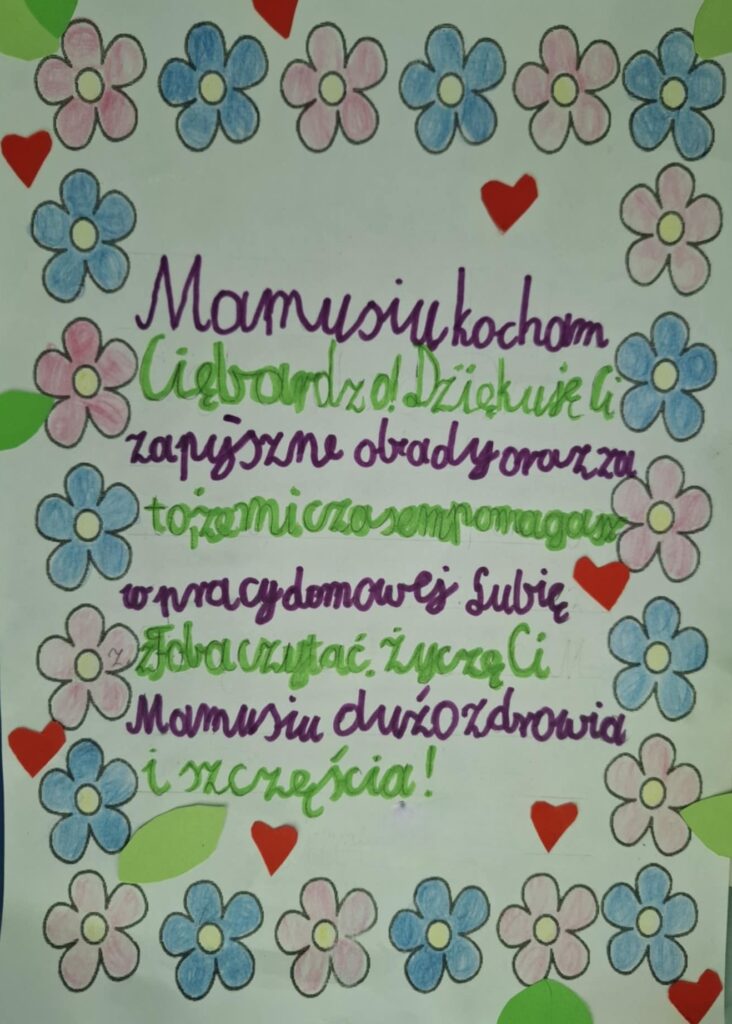 Mamusiu kocham
Cię bardzo! Dziękuję Ci
za pyszne obiady oraz za
to, że mi czasem pomagasz
w pracy domowej Lubię
z Tobą czytać. Życzę Ci
Mamusiu dużo zdrowia
i szczęścia!